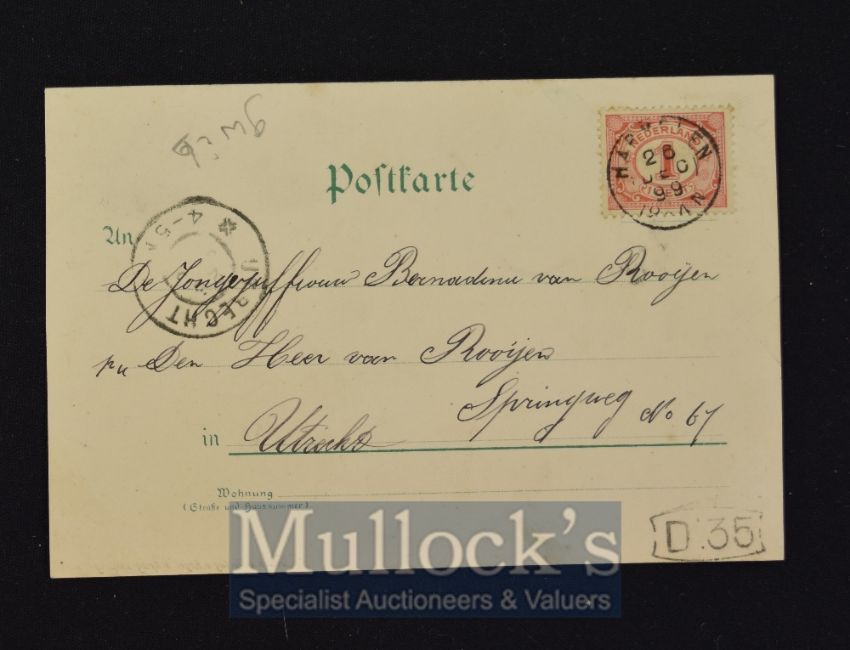 NEDERLAND
1
HARMELEN
26
DEC
99
Postkarte
An
UTRECHT
4-5
De Jongejuffrouw Bernadina van Rooijen
Den Heer van Rooijen
Springweg No 67
in Utrecht
Wohnung
(Straße und Hausnummer)
D.35
Mullock's
Specialist Auctioneers & Valuers